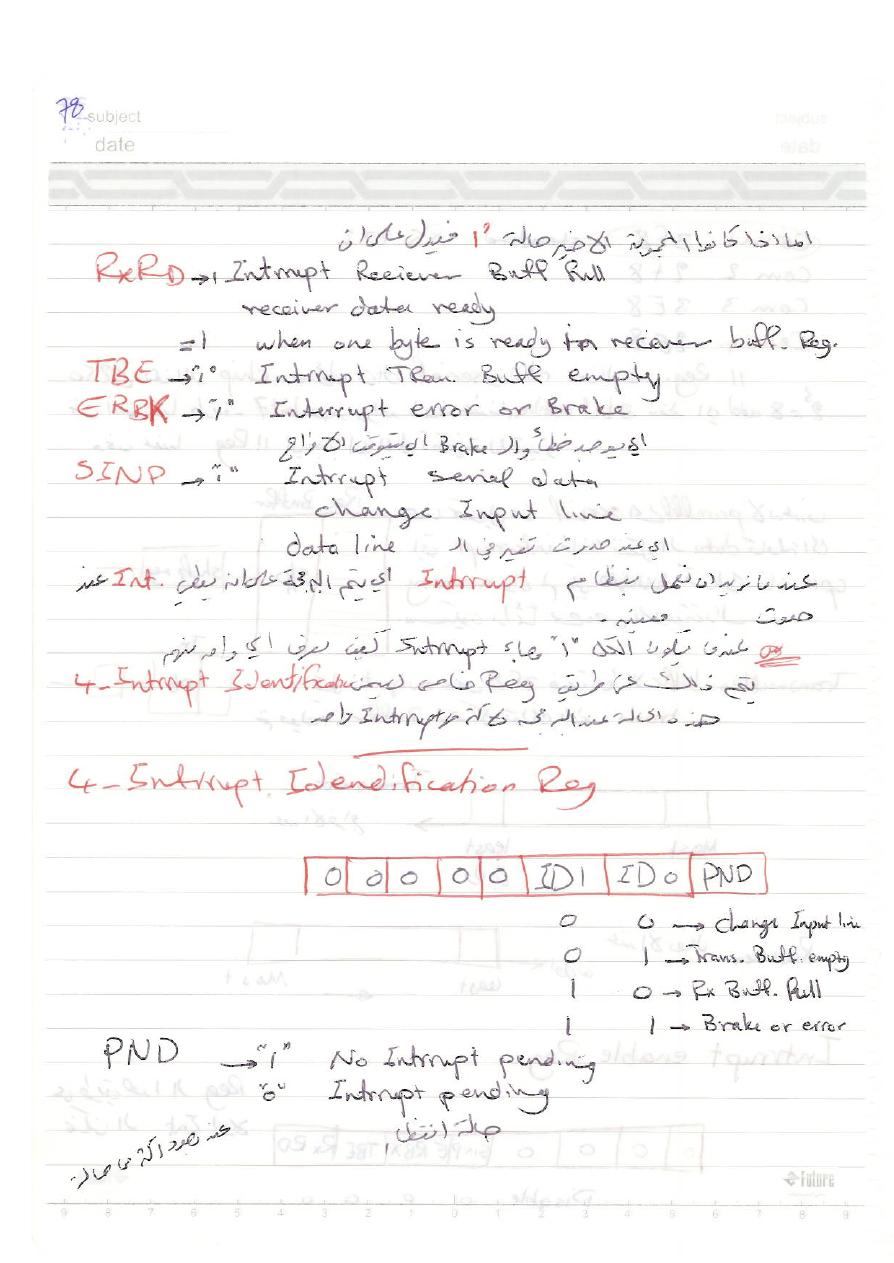 78
subject
date
اما اذا كانت الاخير حالة "1" فيدل على ان
RxRD → 1 Intrrupt Reciever Buff Full
receiver data ready
=1 when one byte is ready in reciever buff. Reg.
TBE → "1" Intrrupt Tran. Buff empty
ERBK → "1" Interrupt error or Brake
اي يوجد خطأ والـ Brake اي
SINP → "1" Intrrupt serial data
change Input line
اي عند حدوث تغير في الـ data line
عندما نريد ان نعمل بنظام Intrrupt اي يتم البرمجة على انه يعطي Int. عند
حدوث معينه
عندما يكون الكل "1" وجاء Intrrupt كيف نعرف اي واحد منهم
يتم ذالك عن طريق Reg خاص 4-Intrrupt Identification
هذه الحالة عند البرمجه Intrrupt واحد
4-Intrrupt Idendification Reg
0 0 0 0 0 ID1 ID0 PND
0 0 → Change Input line
0 1 → Trans. Buff. empty
1 0 → Rx Buff. Full
1 1 → Brake or error
PND → "1" No Intrrupt pending
"0" Intrrupt pending
حالة انتظار
عند اكثر من حالة
Future
9 8 7 6 5 4 3 2 1 0 1 2 3 4 5 6 7 8 9